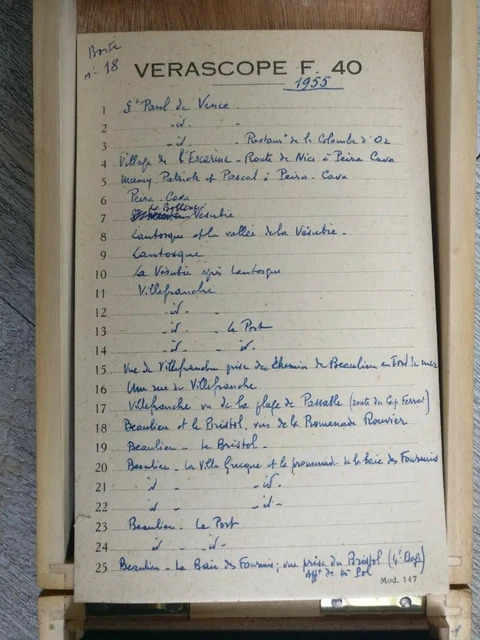 Boite
n° 18
VERASCOPE F. 40
1955
1 St Paul de Vence
2 - id -
3 - id - - Restaurt de la Colombe d'Or
4 Village de l'Escarène - Route de Nice à Peira Cava
5 Mamy Patrick et Pascal à Peira-Cava
6 Peira-Cava
7 Vésubie
8 Lantosque et la vallée de la Vésubie -
9 Lantosque
10 La Vésubie après Lantosque
11 Villefranche
12 - id -
13 - id - - Le Port
14 - id - - id -
15 Vue de Villefranche prise du Chemin de Beaulieu
16 Une rue de Villefranche
17 Villefranche vu de la plage de Passable (route du Cap Ferrat)
18 Beaulieu et le Bristol, vus de la Promenade Rouvier
19 Beaulieu - Le Bristol -
20 Beaulieu - La Villa Grecque et la promenade de la baie des Fourmis
21 id - - id -
22 id - - id -
23 Beaulieu - Le Port
24 id - - id -
25 Beaulieu - La Baie des Fourmis; vue prise du Bristol (4e Etage)
Appt de
Mod. 147